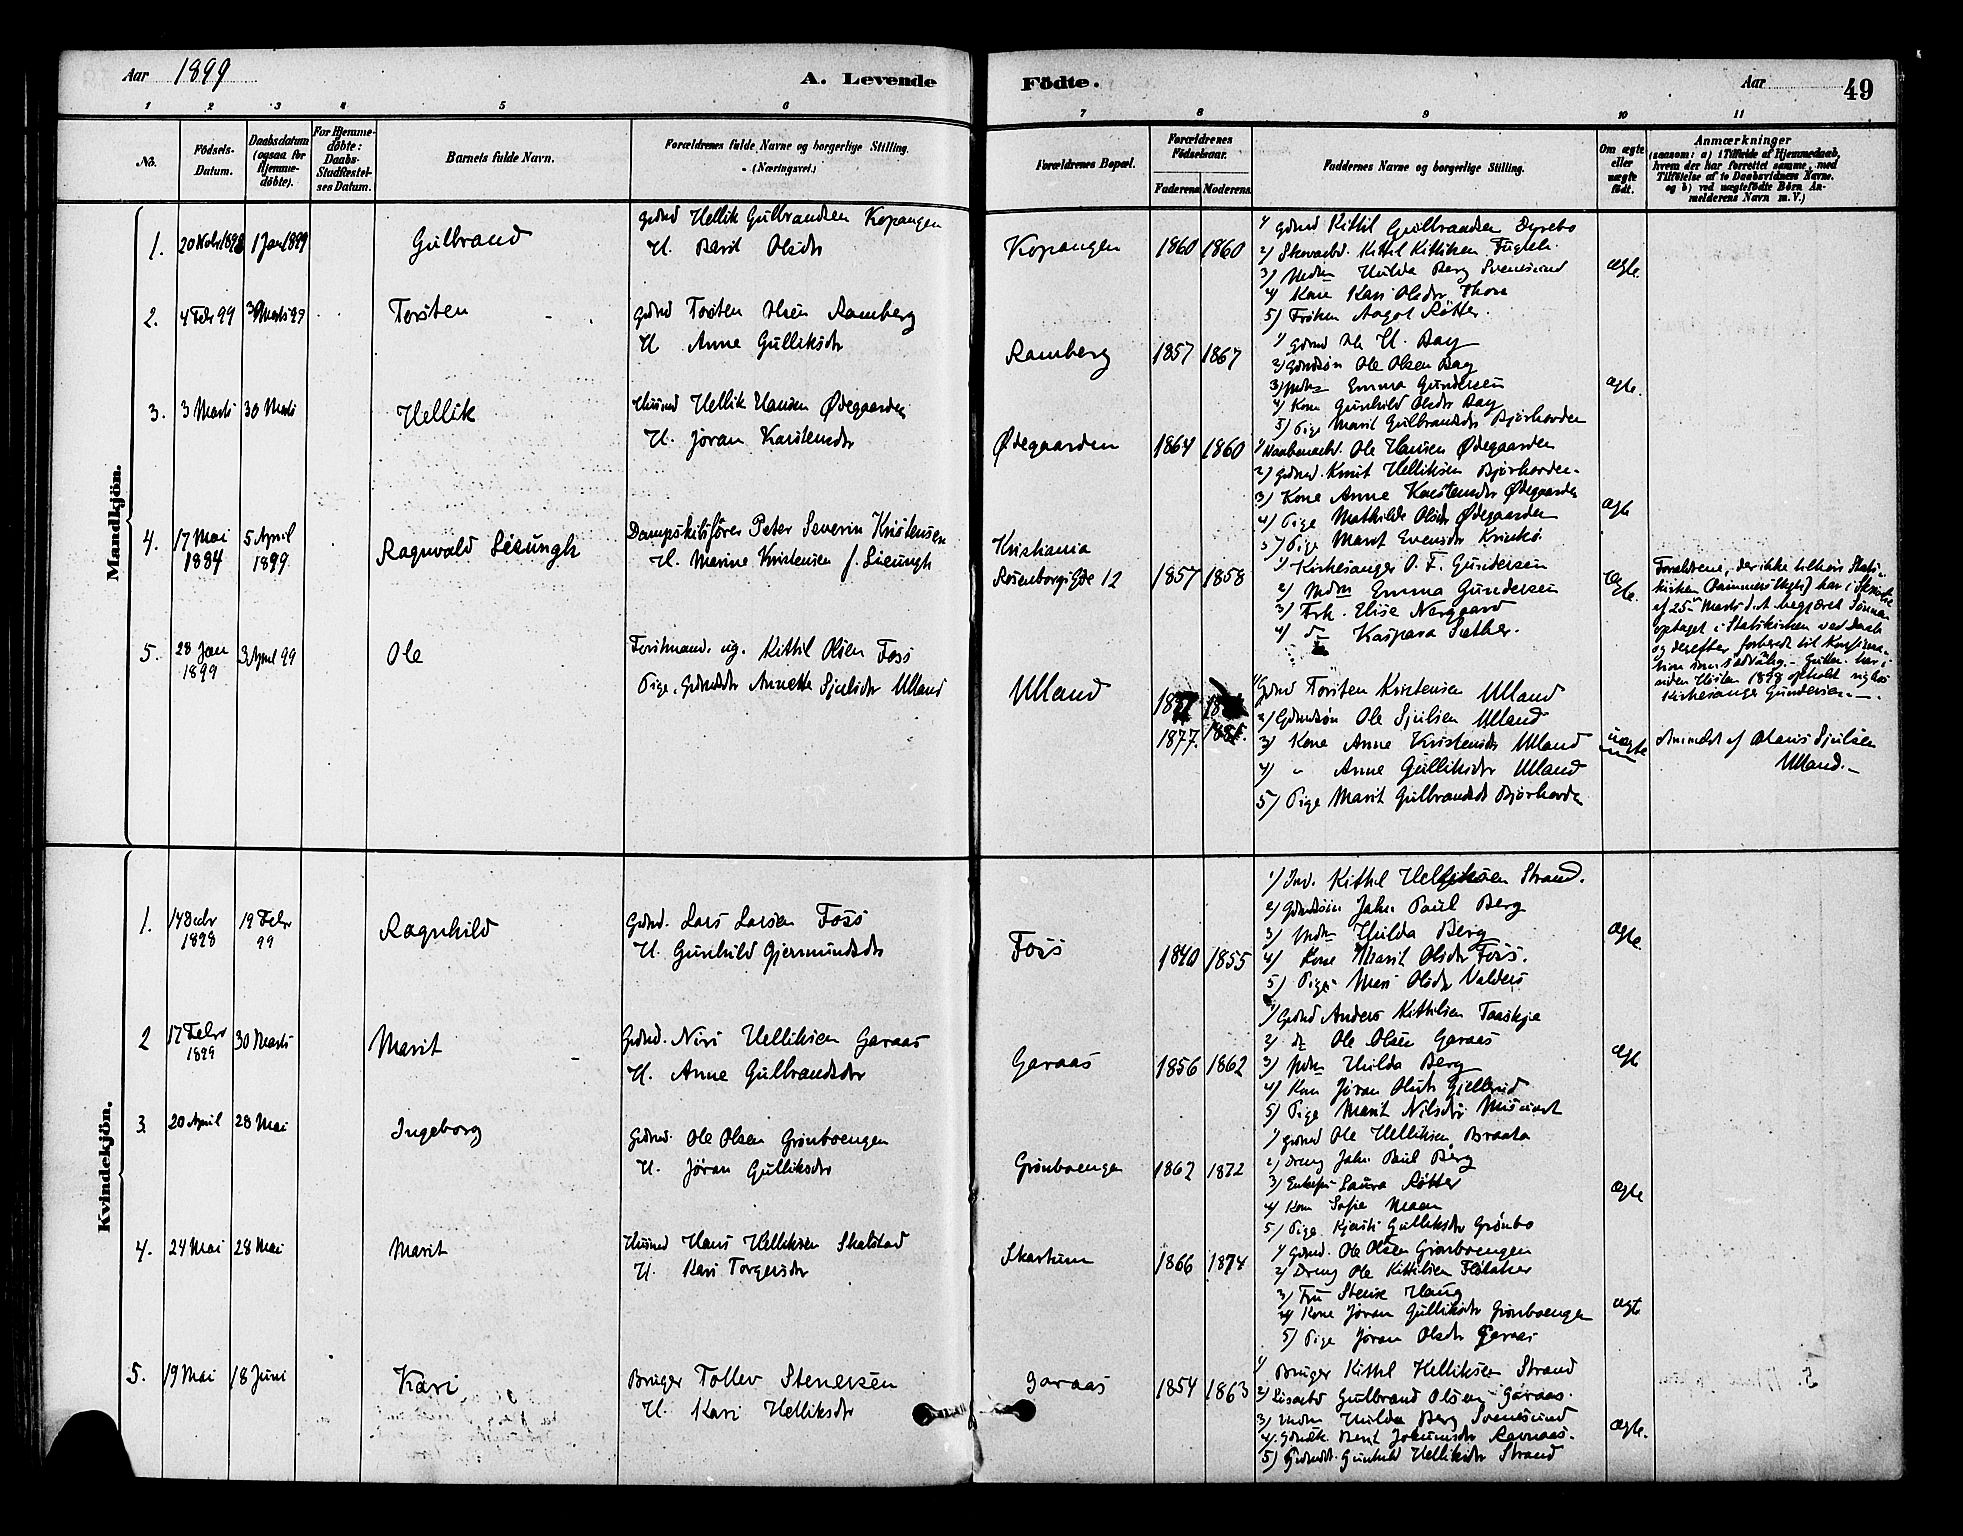 Aar 1899
A. Levende Födte.
Aar
49
1 2 3 4 5 6 7 8 9 10 11
No.
Födsels-Datum.
Daabsdatum (ogsaa for Hjemme-döbte).
For Hjemme-döbte: Daabs-Stadfæstel-ses Datum.
Barnets fulde Navn.
Forældrenes fulde Navne og borgerlige Stilling. (Næringsvei.)
Forældrenes Bopæl.
Forældrenes Födselsaar.
Faderens. Moderens.
Faddernes Navne og borgerlige Stilling.
Om ægte eller uægte födt.
Anmærkninger
(saasom: a) i Tilfælde af Hjemmedaab, hvem der har forrettet samme, med Tilföielse af to Daabsvidners Navne. og b) ved uægtefödte Börn An-melderens Navn m. V.)
Mandkjön.
1. 1 Jan 1899
Gulbrand
Gdmd Hellik Gulbrandsen Kopangen
H. Berit Olsdr
Kopangen 1860 1860
1) Gdmd Kittil Gulbrandsen Dyrebo
2) Skovarbd. Kittil Kittilsen Fugleli
3) Mdm Hulda Berg Svenesund
4) Kone Kari Olsdr Thon
5) Frøken Aagot Røtter.
ægte
2. 4 Febr 99
Torsten
Gdmd Torsten Olsen Ramberg
H Anne Gulliksdr
Ramberg 1857 1867
1) Gdmd Ole H. Bay
2) Gdmdsøn Ole Olsen Bay
3) Mdm Emma Gundersen
4) Kone Gunhild Olsdr Bay
5) Pige Marit Gulbrandsdr Bjørhorden
ægte.
3. 3 Marts 30 Marts
Hellik
Husmd Hellik Hansen Ødegaarden
H. Jøran Karstensdr
Ødegaarden 1864 1860
1) Vaabenarbd. Ole Hansen Ødegaarden
2) Gdmd. Knut Helliksen Bjørhorden.
3) Kone Anne Karstensdr Ødegaarden
4) Pige Mathilde Olsdr Ødegaarden
5) Pige Marit Evensdr
ægte
4. 17 Mai 1884 5 April 1899
Ragnvald Lieungh
Dampskibsfører Peter Severin Kristensen
H. Marine Kristensen f. Lieungh
Kristiania
Rosenborggde 12 1857 1858
1) Kirkesanger O. F. Gundersen
2) Mdm Emma Gundersen
3) Frk. Elise Nergaard
4) do Kaspara Sæther.
Ægte.
Forældrene, der ikke tilhøre Stats-
kirken har i Skrivelse
af 25de Marts d.A. begjæret Sønnen
optaget i Statskirken ved Daab
og derefter forberedt til Konfirma-
tion som sædvanlig. - Gutten har
siden Høsten 1898 opholdt sig hos
Kirkesanger Gundersen. -
5. 28 Jan 1899 3 April 99
Ole
Forstmand. ug. Kittil Olsen Foss
Pige. Gdmdsdr Annette Sjulsdr Ulland
Ulland
1877. 1881.
1) Gdmd Torsten Kristensen Ulland
2) Gdmdsøn Ole Sjulsen Ulland
3) Kone Anne Kristensdr Ulland
4) " Anne Gulliksdr Ulland
5) Pige Marit Gulbrandsdr Bjørhorden
uægte
Anmeldt af Olaus Sjulsen
Ulland. -
Kvindekjön.
1. 14 Decbr 1898 19 Febr 99
Ragnhild
Gdmd. Lars Larsen Foss
H. Gunhild Gjermundsdr
Foss 1840 1855
1) Ind. Kittil Helliksen Strand.
2) Gdmdsøn Johs. Paul Berg
3) Mdm Hulda Berg
4) Kone Marit Olsdr Foss.
5) Pige Mari Olsdr Valders
ægte.
2 17 Febr 1899 30 Marts
Marit
Gdmd. Niri Helliksen Garaas
H. Anne Gulbrandsdr
Garaas 1856 1862
1) Gdmd Anders Kittilsen
2) do Ole Olsen Garaas
3) Mdm Hulda Berg
4) Kone Jøran Olsdr Gjellerud
5) Pige Marit Nilsdr
ægte
3. 20 April 28 Mai
Ingeborg
Gdmd. Ole Olsen Grønboengen
H. Jøran Gulliksdr
Grønboengen 1862 1872
1) Gdmd Ole Helliksen Braata
2) Dreng Johs. Paul Berg
3) Laura Røtter
4) Kone Sofie Moen
5) Pige Kjersti Gulliksdr Grønbo
ægte
4. 24 Mai 28 Mai
Marit
Husmd Hans Helliksen Skalstad
H. Kari Torgersdr
Skartum 1866 1874
1) Gdmd. Ole Olsen Grønboengen
2) Dreng Ole Kittilsen
3) Fru Haug
4) Kone Jøran Gulliksdr Grønboengen
5) Pige Jøran Olsdr Garaas
ægte
5. 19 Mai 18 Juni
Kari
Bruger Tollev Stenersen
H. Kari Helliksdr
Garaas 1854 1863
1) Bruger Kittil Helliksen Strand
2) Gulbrand Olsen Garaas.
3) Mdm Hulda Berg Svenesund
4) Berit Jokumsdr Ravnaas.
5) Gdmdsdr. Gunhild Helliksdr Strand
ægte.